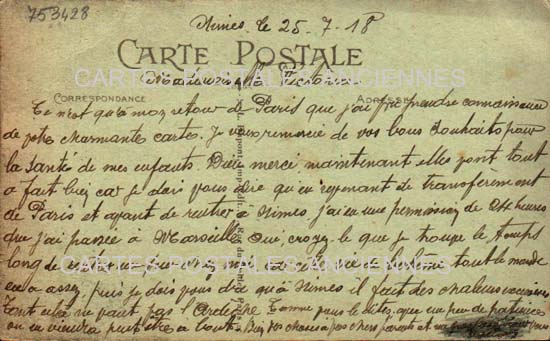 753428
Nîmes, le 25-7-18
CARTE POSTALE
CARTES POSTALES ANCIENNES
Mademoiselle Victorine
CORRESPONDANCE ADRESSE
Ce n'est qu'à mon retour de Paris que j'ai pu prendre connaissance
de votre charmante carte. Je vous remercie de vos bons souhaits pour
la santé de mes enfants. Dieu merci maintenant elles vont tout
a fait bien car je dois vous dire qu'en revenant de transfèrement
de Paris et avant de rentrer à Nîmes j'ai eu une permission de 24 heures
que j'ai passée à Marseille. Oui croyez-le que je trouve le temps
long de
CARTES POSTALES ANCIENNES
tout le monde
en a assez, puis je dois vous dire qu'à Nîmes il fait des chaleurs
Tout cela ne vaut pas l'Ardèche. Comme vous le dites, avec un peu de patience
on en viendra peut être a bout. Bien des choses à vos chers parents et